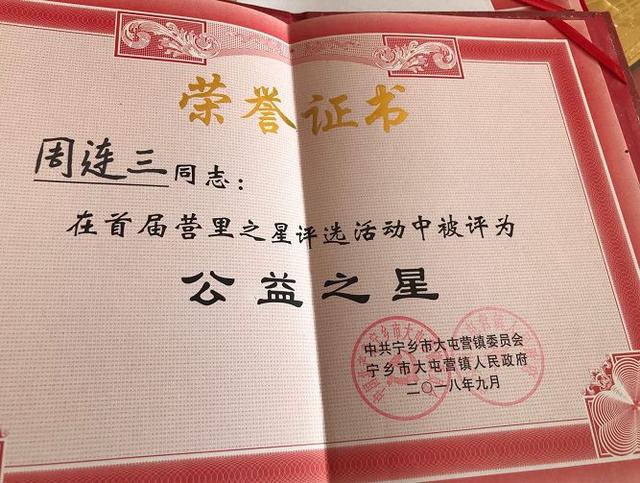 荣誉证书
周连三同志：
在首届营里之星评选活动中被评为
公益之星
中共宁乡市大屯营镇委员会
宁乡市大屯营镇人民政府
二〇一八年九月